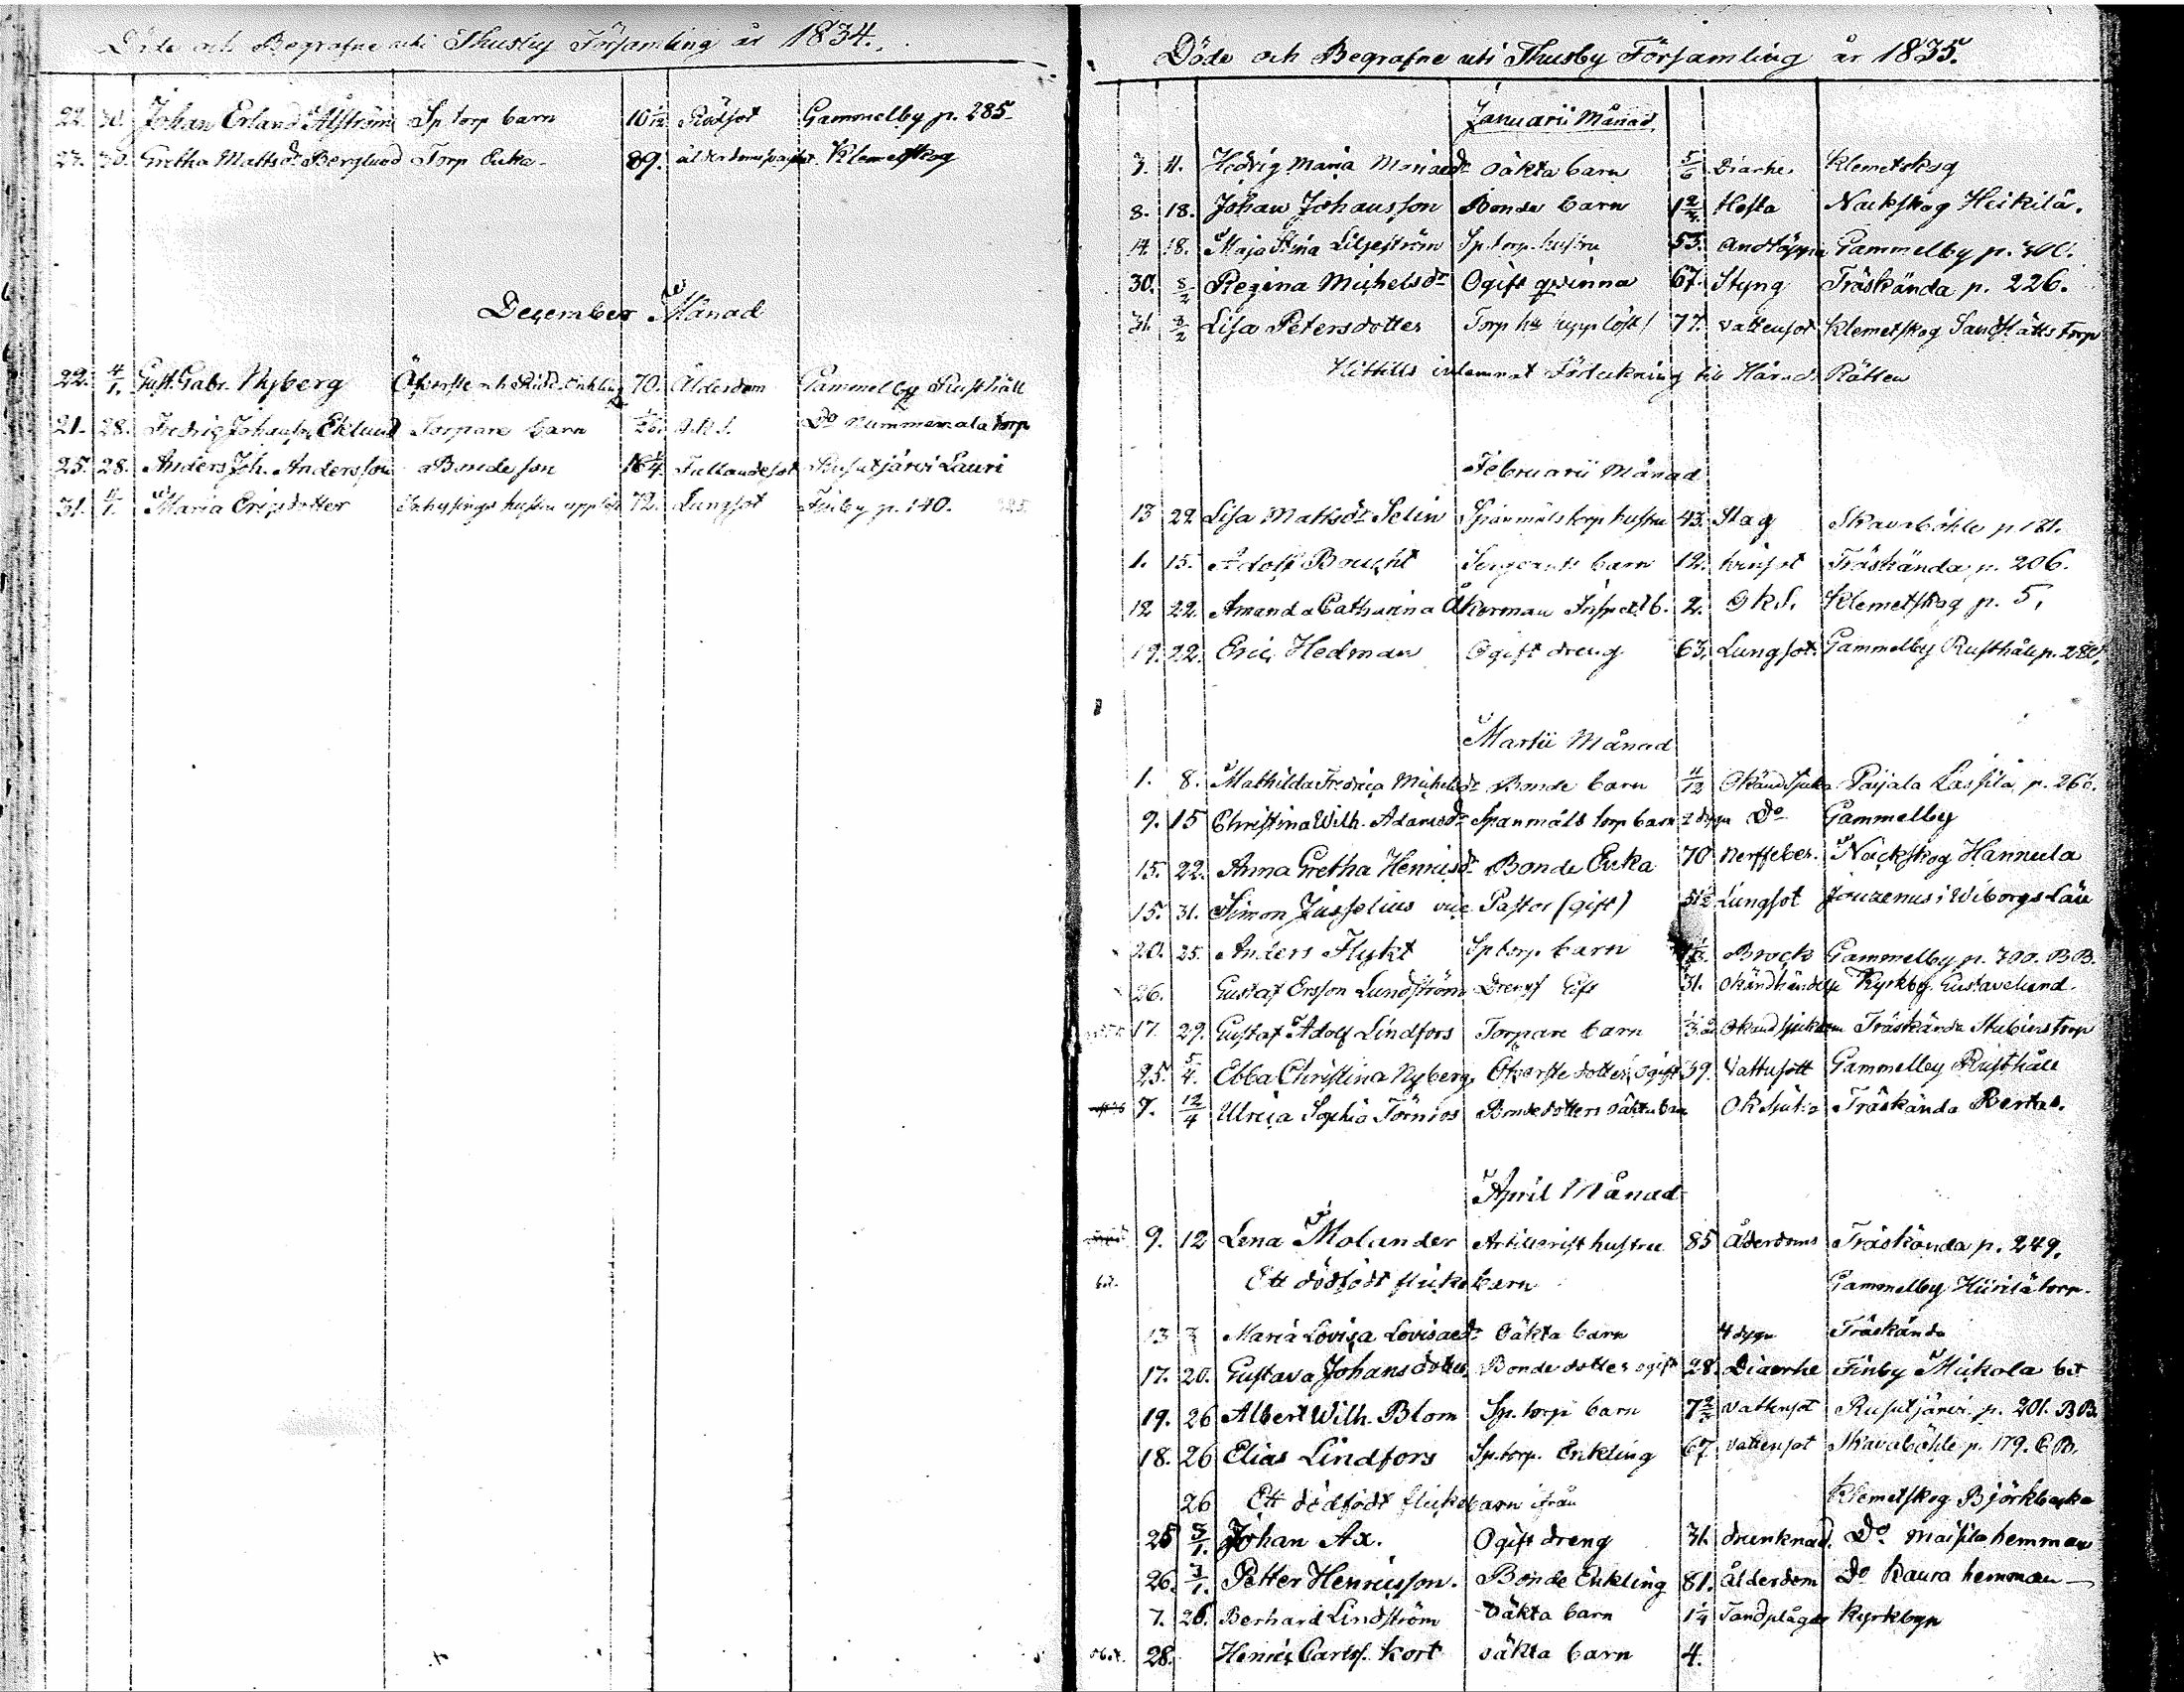 Döde och Begrafne uti Thusby Församling år 1834.
22. 30. Johan Erland Alström Sp torp barn 10/12 Rödsot Gammelby p. 285.
27. 30. Gretha Matts dr Berglund Torp Enka 89. Klemetskog
December Månad
22. 4/1. Gust. Gabr. Nyberg 70. Ålderdom Gammelby Rusthåll
21. 28. Fredrig Johansson Eklund Torpare barn Do Nummenmala torp
25. 28. Anders Joh. Andersson Bonde son 16 1/4. Fallandesot Rusutjärvi Lauri
31. 4/1. Maria Ericsdotter 72. Lungsot Finby p. 140.
Döde och Begrafne uti Thusby Församling år 1835.
Januarii Månad
3. 11. Hedvig Maria Mariae dr Oäkta barn 5/6 Diarhe Klemetskog
8. 18. Johan Johansson Bonde barn Hosta Nackskog Heikilä.
14. 18. Maja Stina Liljeström Sp. torp. hustru 53. Andtäppa Gammelby p. 300.
30. 8/2 Regina Michelsdr Ogift qvinna 67. Styng Träskända p. 226.
31. 8/2 Lisa Petersdotter Torp 77. Vattensot Klemetskog Sandslätts Torp
Hittills inlemnat Förtekning till Härads Rätten
Februarii Månad
13 22. Lisa Mattsdr Selin Spanmåls torp hustru 43. Slag Skavaböhle p 181.
1. 15. Adolf Boucht Sergeants barn 12. Träskända p. 206.
12 22. Amanda Catharina Åkerman Inspect. b. 2. Ok S. Klemetskog p. 5.
19. 22. Eric Hedman Ogift dreng 63. Lungsot. Gammelby Rusthåll p. 280.
Martii Månad
1. 8. Mathilda Fredrica Michelsdr Bonde barn 11/12 Okänd sjuka Paijala Lassila p. 266.
9. 15 Christina Wilh. Adamsdr Spanmåls torp barn 2 dygn Do Gammelby
15. 22. Anna Gretha Henricsdr Bonde Enka 70 Nerffeber. Nackskog Hannula
15. 31. Simon Jusselius vice Pastor (gift) Lungsot Jouzenus i Wiborgs Län
20. 25. Anders Flykt Sp torp barn Brock Gammelby p. 300. B.B.
26. Gustaf Ersson Lundström Dreng Gift 31. Okänd händelse Kyrkby Gustavelund.
17. 29. Gustaf Adolf Lindfors Torpare barn Okänd sjukdom Träskända Stubins torp
25. 5/4. Ebba Christina Nyberg Öfverste dotter, ogift 39. Vattusott Gammelby Rusthåll
7. 12/4 Ulrica Sophia Törnros Bondedotters oäkta barn Ok Sjuka Träskända Bertas.
April Månad
9. 12 Lena Molander Artillerist hustru 85 Ålderdoms Träskända p. 249.
Ett dödfödt flicko barn Gammelby Hiirilä torp.
13 Maria Lovisa Lovisaedr Oäkta barn 4 dygn Träskända
17. 20. Gustava Johansdotter Bonde dotter ogift 28. Diaerhe Finby Mickola bol
19. 26 Albert Wilh. Blom Sp. torp barn 7 Vattensot Rusutjärvi p. 201. B.B.
18. 26 Elias Lindfors Sp. torp. Enkling 67. Vattensot Skavaböhle p. 179. C.B.
26 Ett dödfödt flicko barn ifrån Klemetskog Björkbacka
25 3/1. Johan Ax. Ogift dreng 31. drunknad. Do Maisila hemman
26. 3/1. Petter Henricsson. Bonde Enkling 81. ålderdom Do Kaura hemman
7. 26. Berhard Lindström Oäkta barn 1 1/4 Tandplågor Kyrkbyn
28. Henric Carlss. Kort oäkta barn 4.